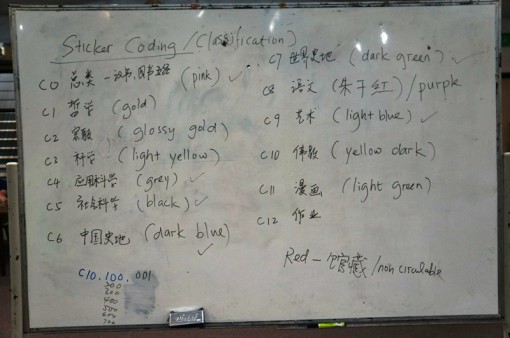 Sticker Coding / (Classification)
C0 总类 (pink) ✓
C1 哲学 (gold)
C2 宗教 (glossy gold)
C3 科学 (light yellow)
C4 应用科学 (grey) ✓
C5 社会科学 (black) ✓
C6 中国史地 (dark blue) ✓
C7 世界史地 (dark green) ✓
C8 语文 (朱于红) / purple
C9 艺术 (light blue) ✓
C10 佛教 (yellow dark)
C11 漫画 (light green)
C12 作业
Red - 馆藏 / non circulable
C10.100.001
200
300
400
500
600
700